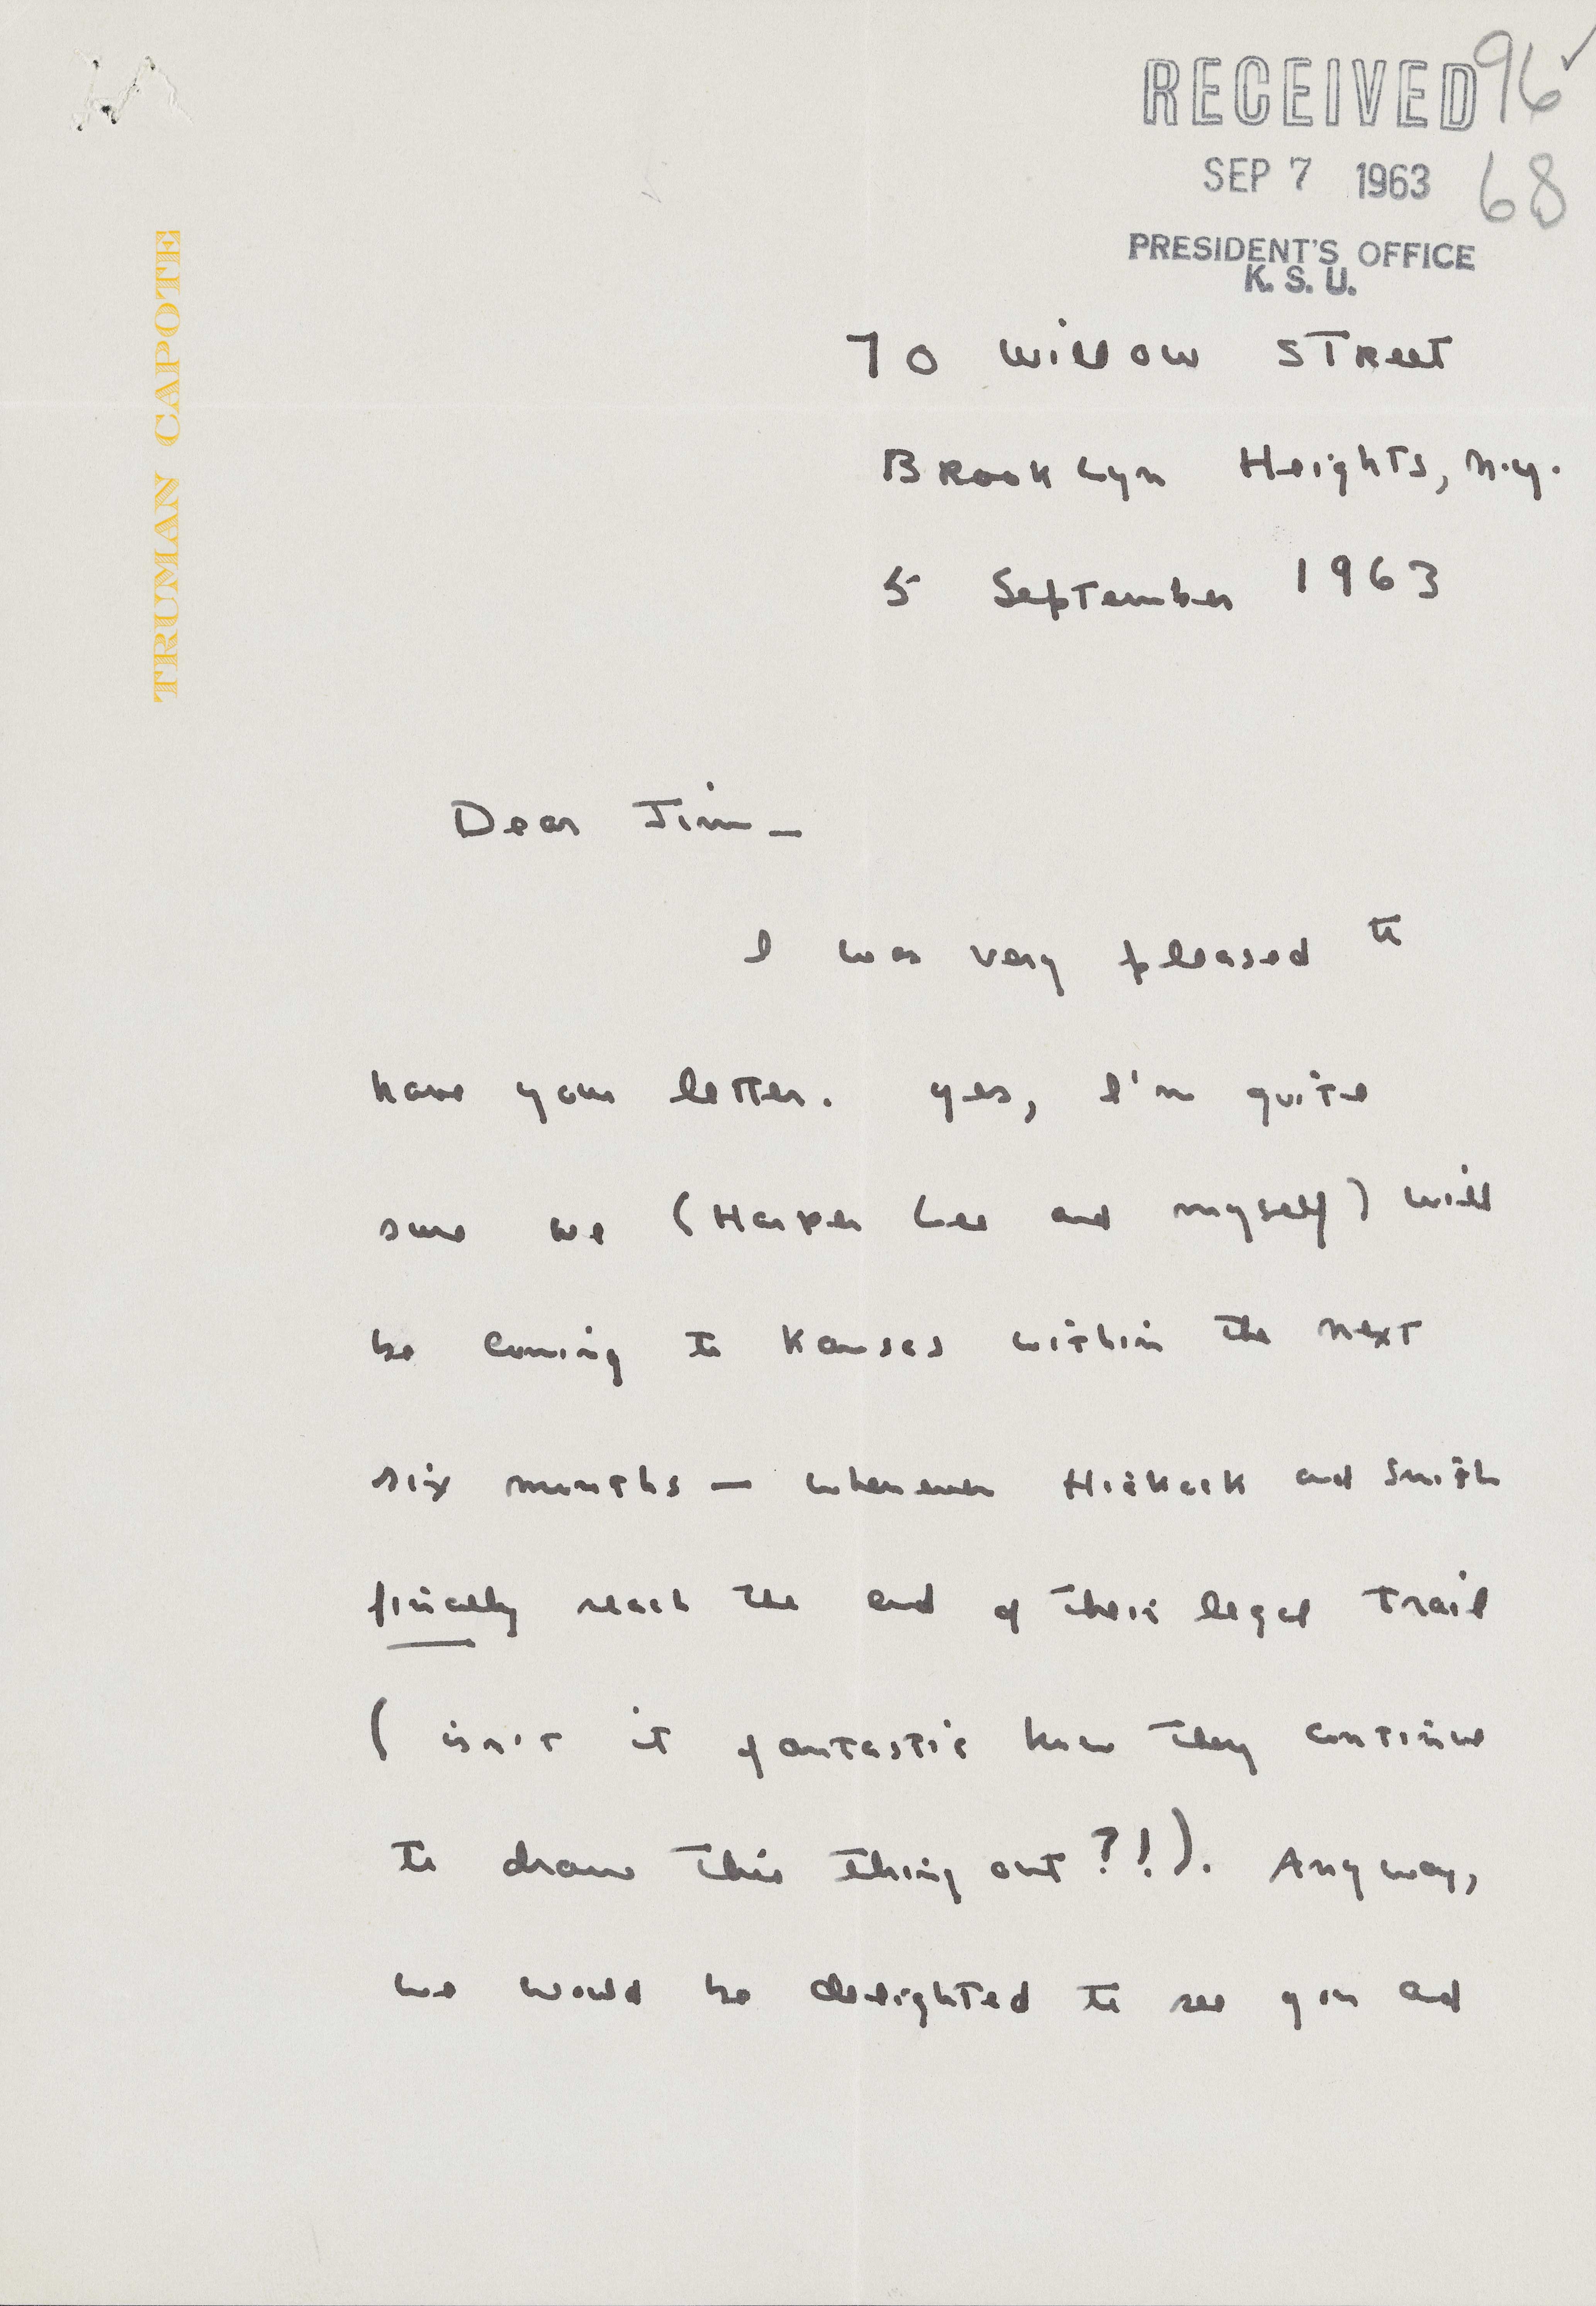 RECEIVED 96 ✓
SEP 7 1963 68
PRESIDENT'S OFFICE
K. S. U.
TRUMAN CAPOTE
70 Willow Street
Brooklyn Heights, N.Y.
5 September 1963
Dear Jim—
I was very pleased to
have your letter. Yes, I'm quite
sure we (Harper Lee and myself) will
be coming to Kansas within the next
six months — whenever Hickock and Smith
finally reach the end of their legal trail
(isn't it fantastic how they continue
to draw this thing out?!). Anyway,
we would be delighted to see you and